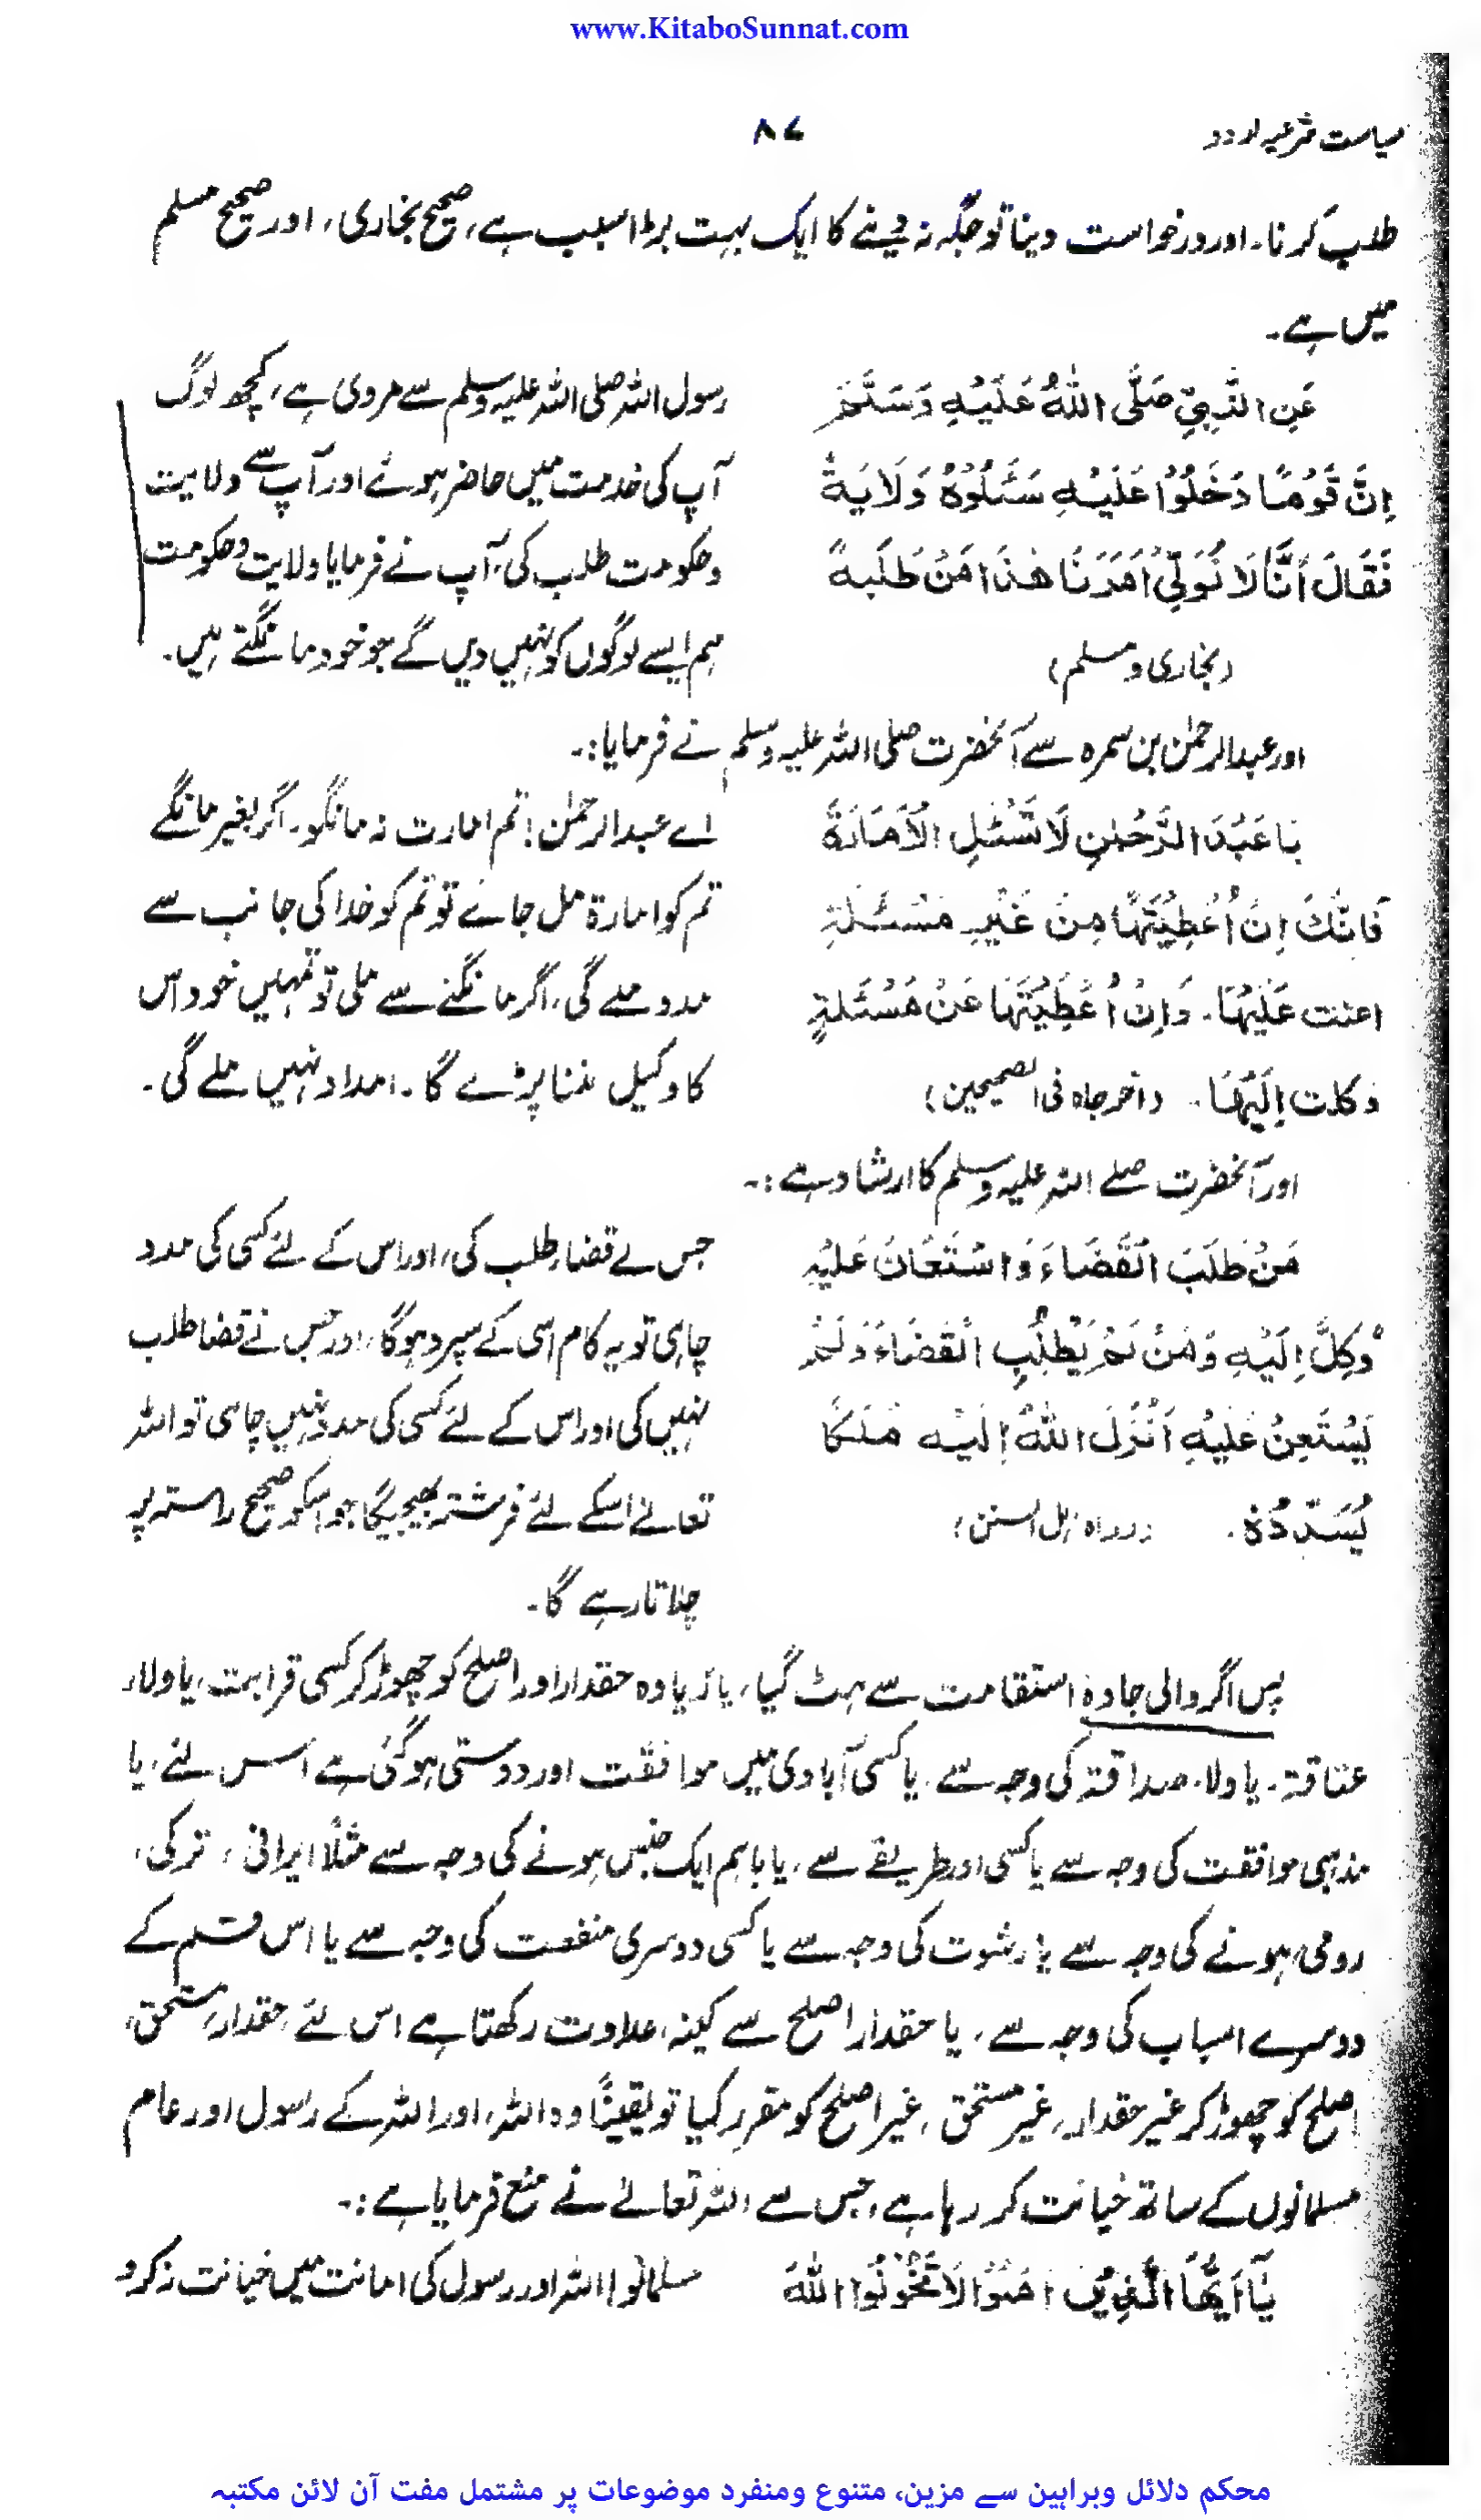 www.KitaboSunnat.com
سیاست شرعیہ اردو
۸۷
طلب کرنا۔ اور درخواست دینا تو جگہ نہ دینے کا ایک بہت بڑا سبب ہے، صحیح بخاری، اور صحیح مسلم
میں ہے۔
عَنِ النَّبِيِّ صَلَّى اللهُ عَلَيْهِ وَسَلَّمَ
اِنَّ قَوْمًا دَخَلُوْا عَلَيْهِ سَئَلُوْهُ وَلَايَةً
فَقَالَ اَنَّا لَا نُوَلِّيْ اَمْرَنَا هٰذَا مَنْ طَلَبَهٗ
(بخاری و مسلم)
رسول اللہ صلی اللہ علیہ وسلم سے مروی ہے، کچھ لوگ
آپ کی خدمت میں حاضر ہوئے اور آپ سے ولایت
وحکومت طلب کی، آپ نے فرمایا ولایت وحکومت
ہم ایسے لوگوں کو نہیں دیں گے جو خود مانگتے ہیں۔
اور عبدالرحمٰن بن سمرہ سے آنحضرت صلی اللہ علیہ وسلم نے فرمایا:۔
يَا عَبْدَ الرَّحْمٰنِ لَا تَسْئَلِ الْاَمَارَةَ
فَاِنَّكَ اِنْ اُعْطِيْتَهَا مِنْ غَيْرِ مَسْئَلَةٍ
اعنت عَلَيْهَا۔ وَاِنْ اُعْطِيْتَهَا عَنْ مَسْئَلَةٍ
وكلت اِلَيْهَا۔ (اخرجاہ فی الصحیحین)
اے عبدالرحمٰن! تم امارت نہ مانگو۔ اگر بغیر مانگے
تم کو امارۃ مل جائے تو تم کو خدا کی جانب سے
مدد ملے گی، اگر مانگنے سے ملی تو تمہیں خود اس
کا وکیل بننا پڑے گا۔ امداد نہیں ملے گی۔
اور آنحضرت صلے اللہ علیہ وسلم کا ارشاد ہے:۔
مَنْ طَلَبَ الْقَضَاءَ وَاسْتَعَانَ عَلَيْهِ
وُكِلَ اِلَيْهِ وَمَنْ لَمْ يَطْلُبِ الْقَضَاءَ وَلَمْ
يَسْتَعِنْ عَلَيْهِ اَنْزَلَ اللهُ اِلَيْهِ مَلَكًا
يُسَدِّدُهٗ۔ (رواہ اہل السنن)
جس نے قضا طلب کی، اور اس کے لئے کسی کی مدد
چاہی تو یہ کام اسی کے سپرد ہوگا، اور جس نے قضا طلب
نہیں کی اور اس کے لئے کسی کی مدد نہیں چاہی تو اللہ
تعالے اسکے لئے فرشتہ بھیجیگا جو اسکو صحیح راستہ پر
چلاتا رہے گا۔
پس اگر والی جادۂ استقامت سے ہٹ گیا، یا زیادہ حقدار اور اصلح کو چھوڑ کر کسی قرابت، یا ولاء
عتاقۃ۔ یا ولاء صداقۃ کی وجہ سے، یا کسی آبادی میں موافقت اور دوستی ہوگئی ہے اس لئے، یا
مذہبی موافقت کی وجہ سے یا کسی اور طریقے سے، یا باہم ایک جنس ہونے کی وجہ سے مثلاً ایرانی، ترکی،
رومی ہونے کی وجہ سے یا رشوت کی وجہ سے یا کسی دوسری منفعت کی وجہ سے یا اس قسم کے
دوسرے اسباب کی وجہ سے، یا حقدار اصلح سے کینہ، عداوت رکھتا ہے اس لئے حقدار، مستحق،
اصلح کو چھوڑ کر غیر حقدار، غیر مستحق، غیر اصلح کو مقرر کیا تو یقیناً وہ اللہ، اور اللہ کے رسول اور عام
مسلمانوں کے ساتھ خیانت کر رہا ہے، جس سے اللہ تعالے نے منع فرمایا ہے:۔
يَآ اَيُّهَا الَّذِيْنَ اٰمَنُوْا لَا تَخُوْنُوا اللهَ
مسلمانو! اللہ اور رسول کی امانت میں خیانت نہ کرو
محکم دلائل وبراہین سے مزین، متنوع ومنفرد موضوعات پر مشتمل مفت آن لائن مکتبہ